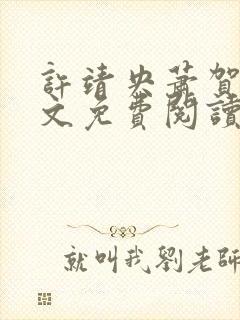 許靖央蕭賀
文免費閱讀
就叫我劉老師